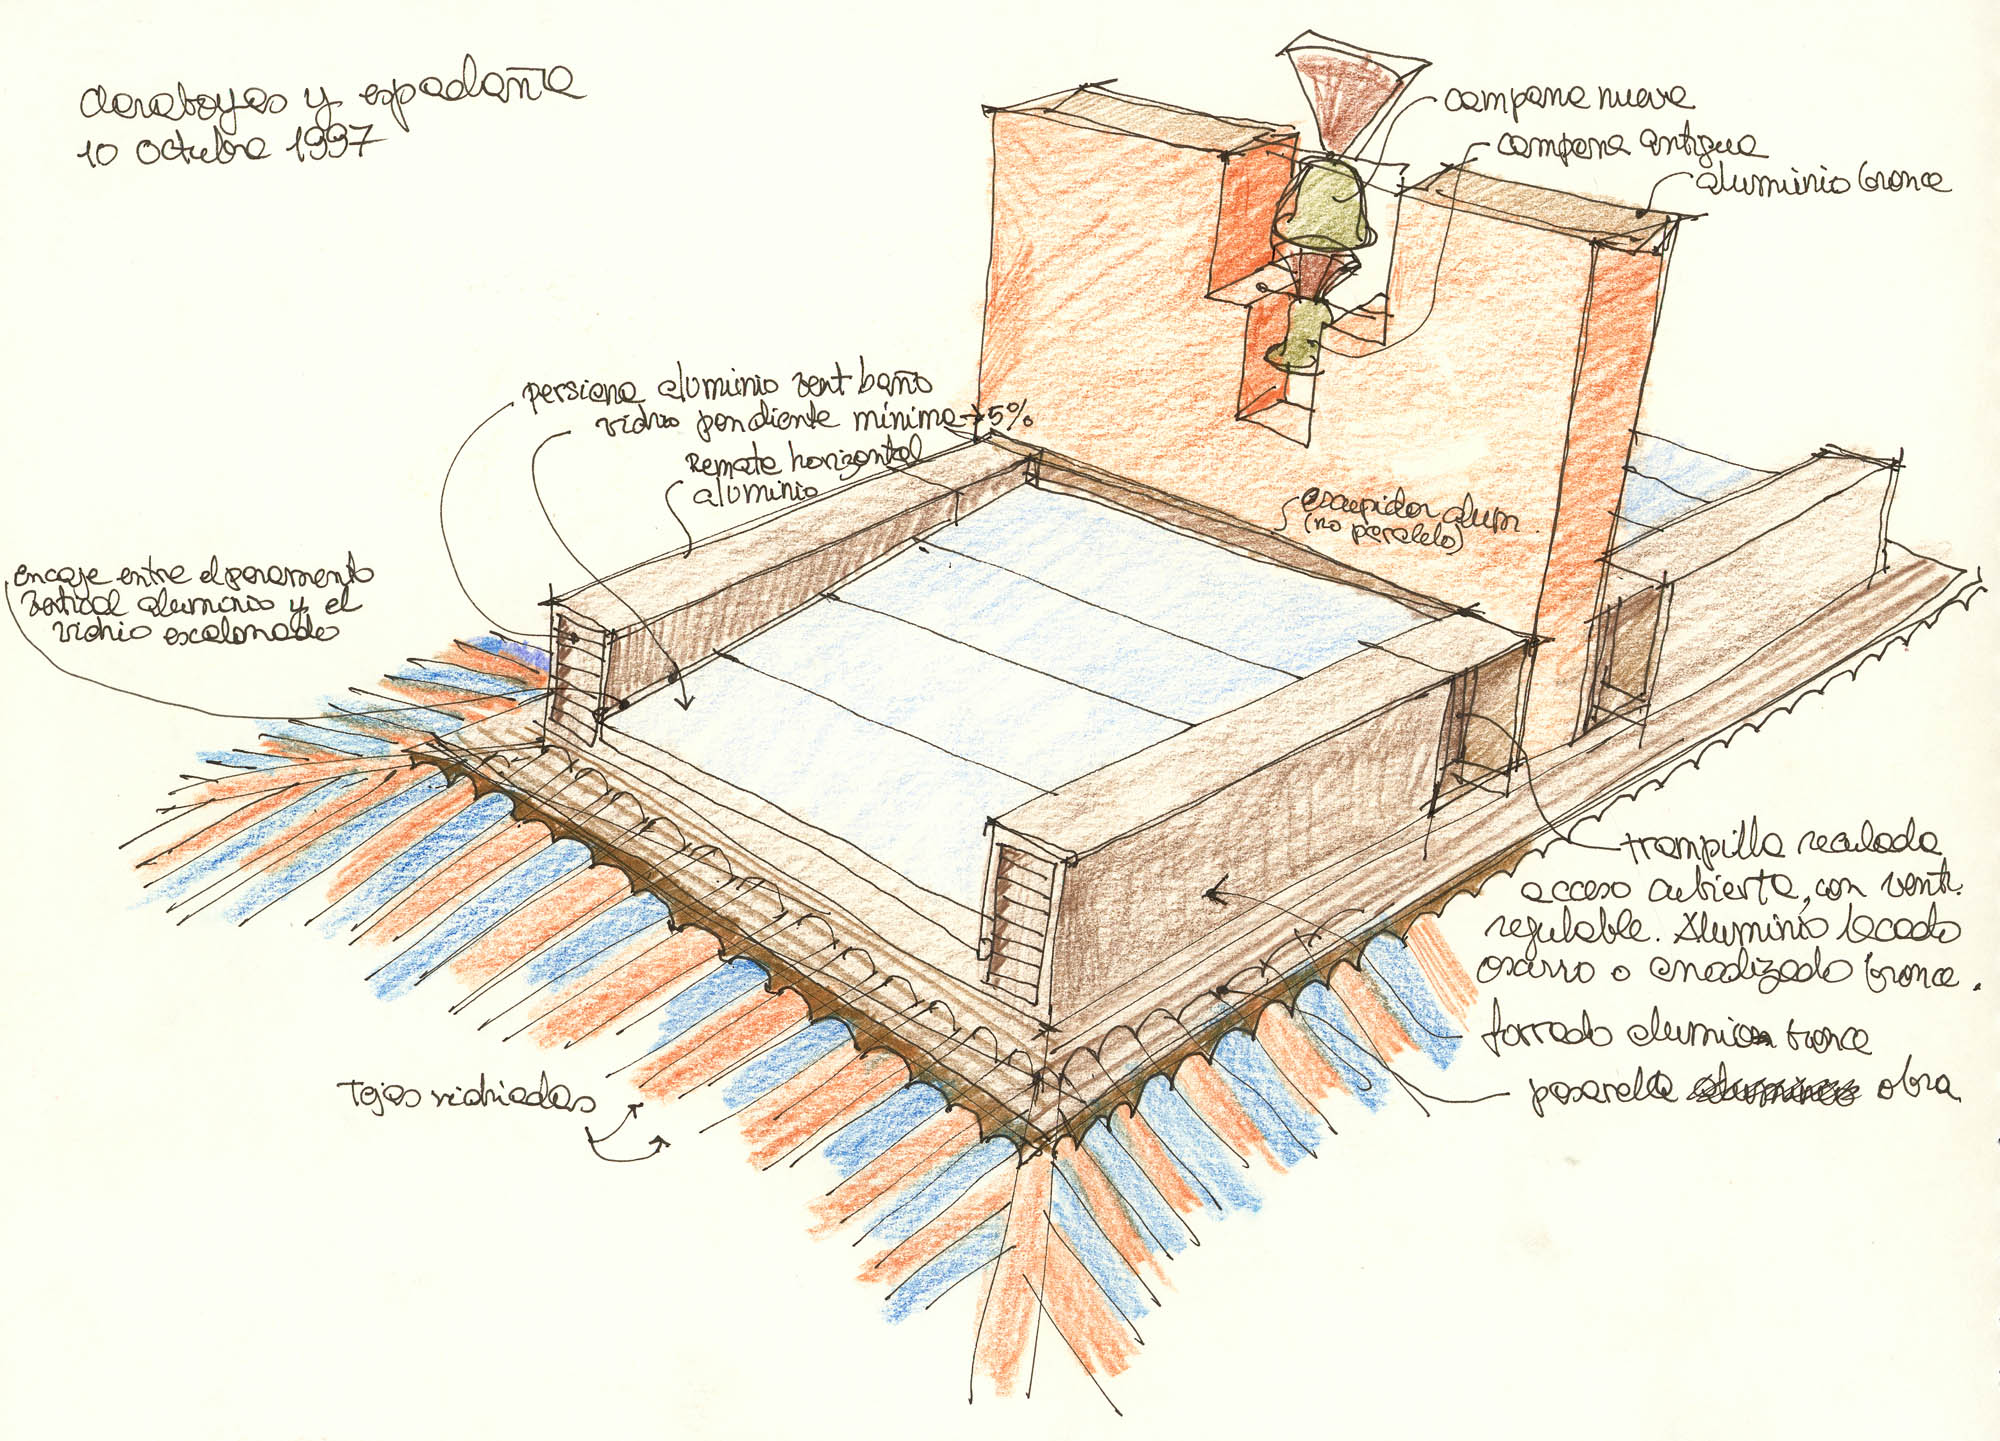 claraboyas y espadaña
10 octubre 1997
campana nueva
campana antigua
aluminio bronce
persiana aluminio vent baño
vidrio pendiente mínima → 5%
Remate horizontal
aluminio
escupidor alum.
(no paralelo)
encaje entre el paramento
vertical aluminio y el
vidrio escalonado
trampilla regulada
acceso cubierta, con vent.
regulable. Aluminio lacado
oxirro o anodizado bronce.
forrado aluminio bronce
pasarela obra
Tejas vidriadas